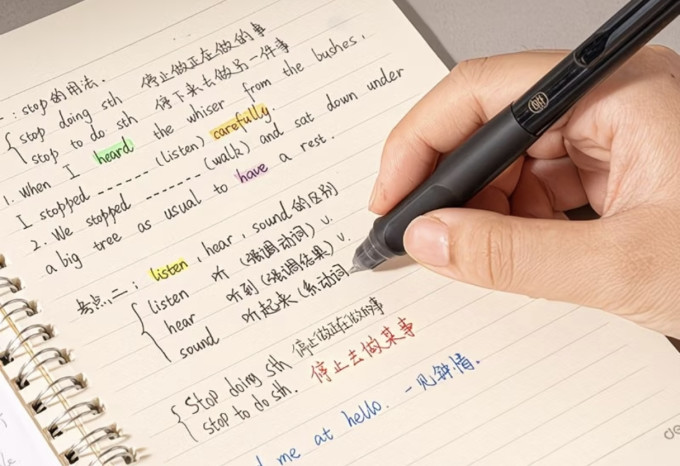 一：stop的用法.
stop doing sth 停止做正在做的事
stop to do sth 停下来去做另一件事
1. When I heard the whiser from the bushes,
I stopped ------ (listen) carefully.
2. We stopped ------ (walk) and sat down under
a big tree as usual to have a rest.
考点二：listen, hear, sound 的区别
listen 听 (强调动词) v.
hear 听到 (强调结果) v.
sound 听起来 (系动词
Stop doing sth 停止做正在做的事
stop to do sth. 停止去做某事
me at hello. 一见钟情.
de